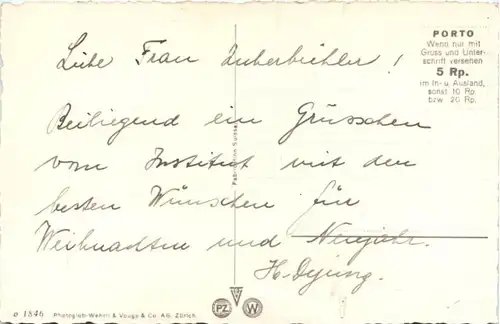 Liebe Frau !
Beiliegend ein Grüsschen
vom Institut mit den
besten Wünschen für
Weihnachten und Neujahr.
PORTO
Wenn nur mit
Gruss und Unter-
schrift versehen
5 Rp.
im In- u. Ausland,
sonst 10 Rp
bzw 20 Rp.
Fabrication Suisse
o 1846 Photoglob-Wehrli & Vouga & Co. AG. Zürich.
PZ
W